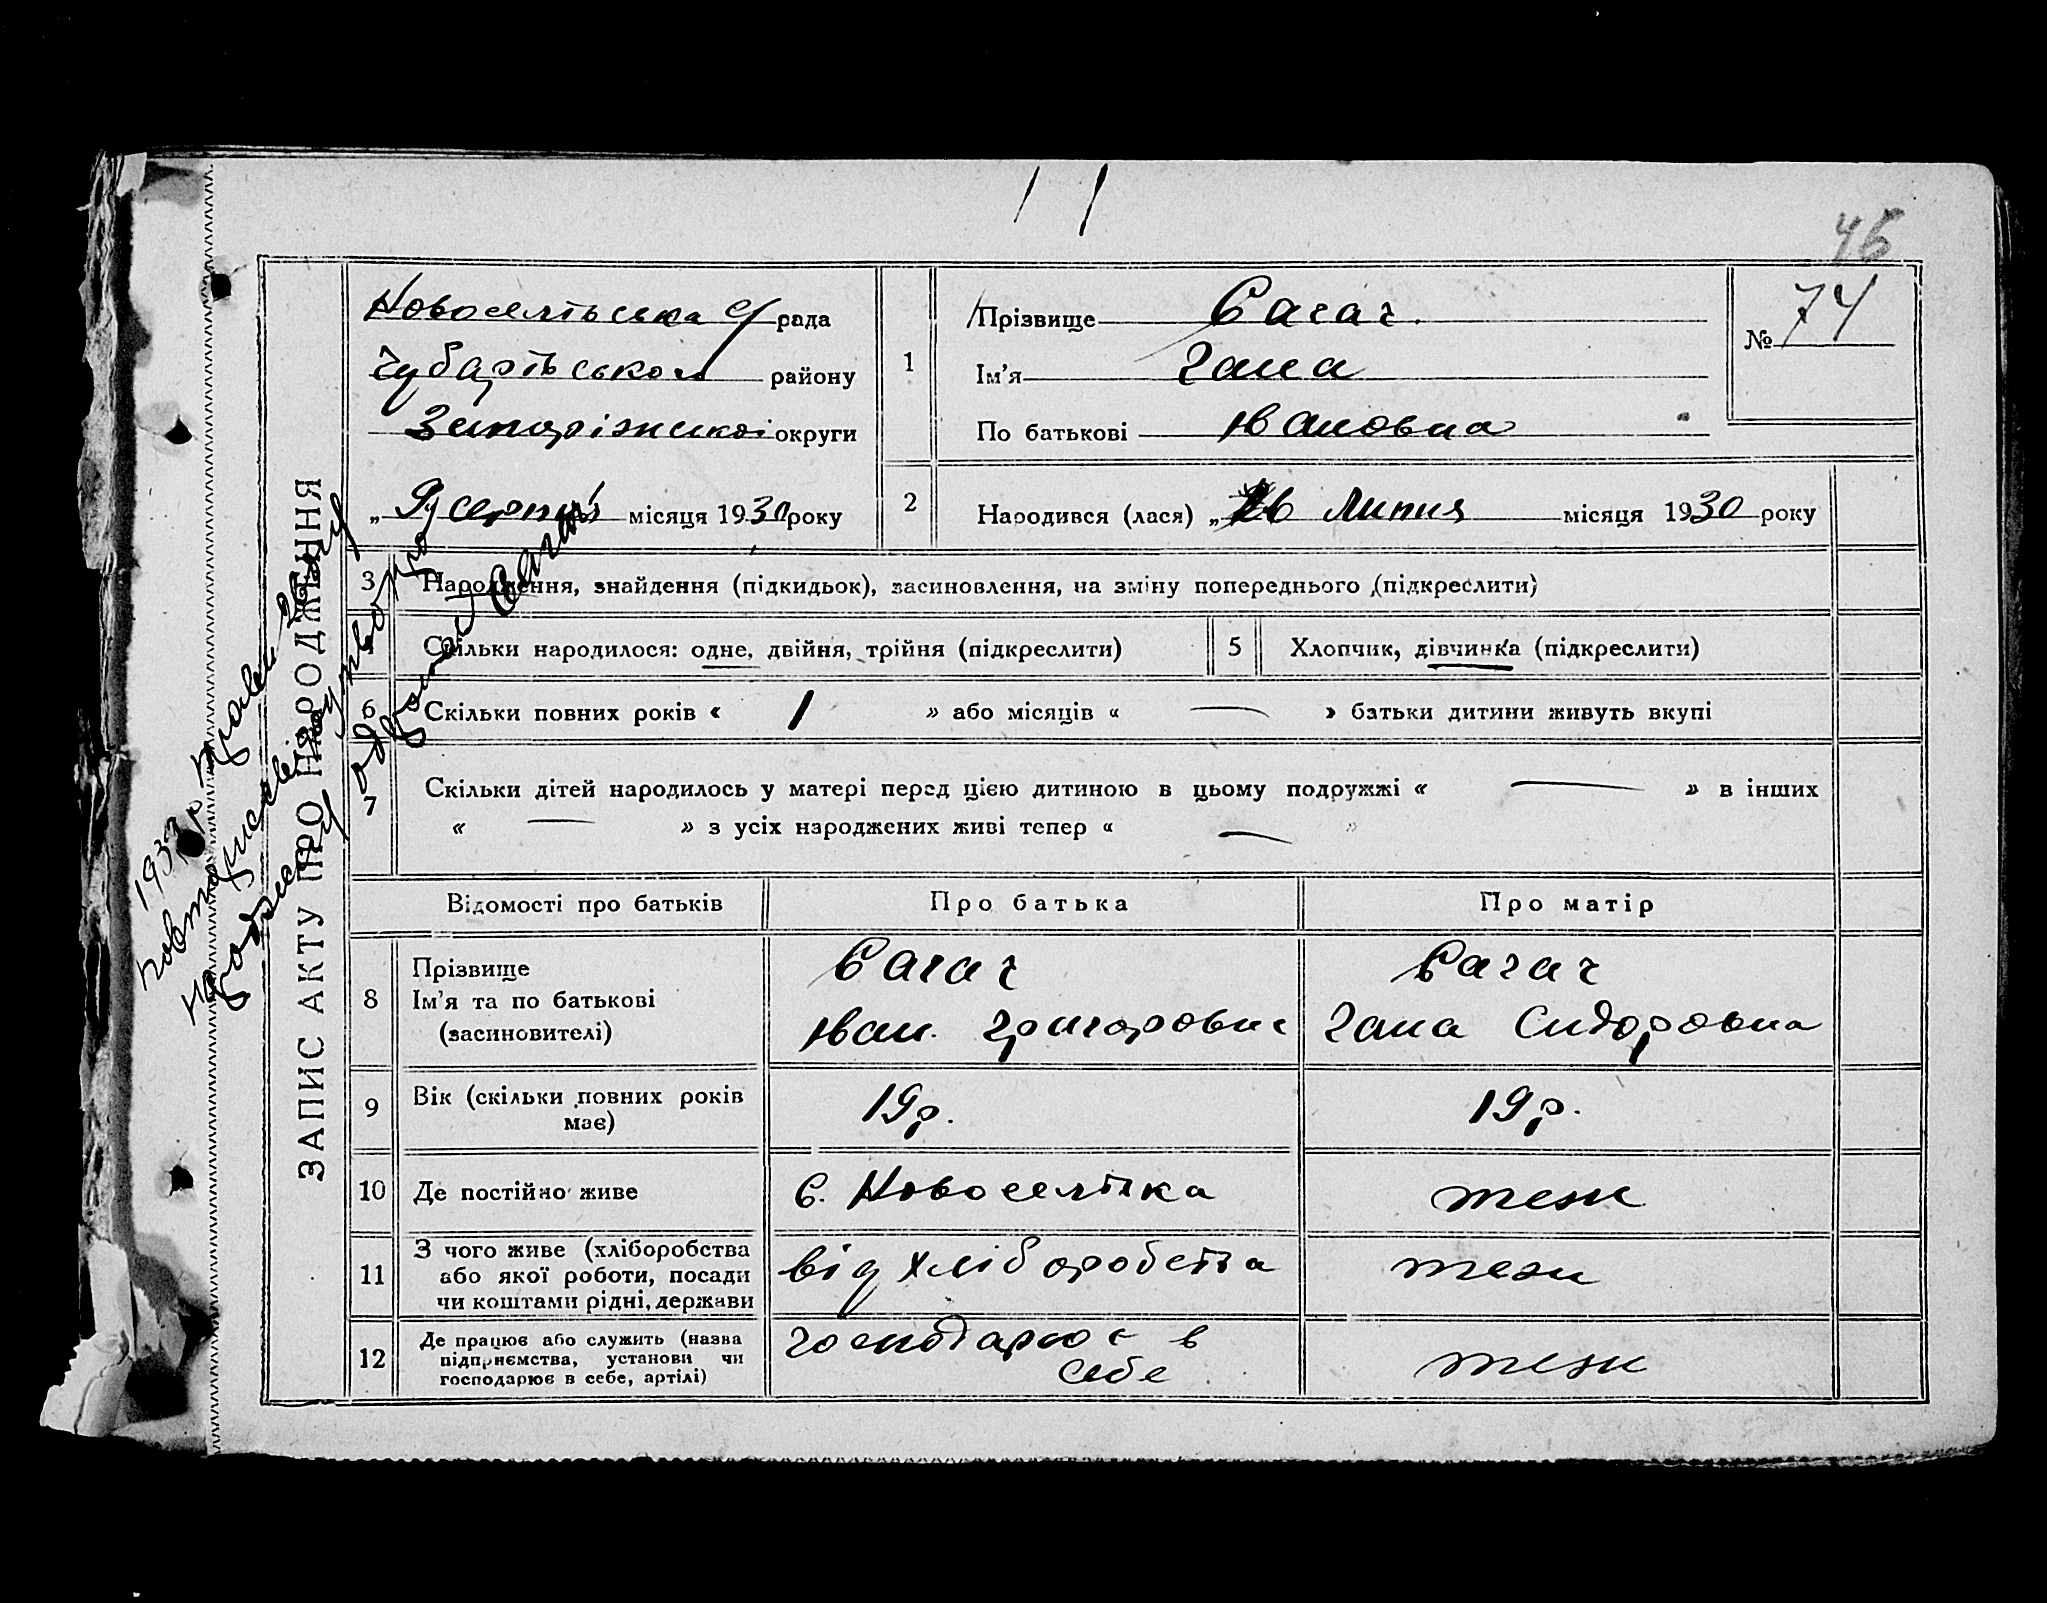 45
Новоселівська с/рада
Чубарівського району
Запоріжської округи
„9" серпня місяця 1930 року
1
Прізвище Сагач.
Ім'я Гана
По батькові Івановна
№ 74
2
Народився (лася) „26 Липня місяця 1930 року
ЗАПИС АКТУ ПРО НАРОДЖЕННЯ
3 Народження, знайдення (підкидьок), засиновлення, на зміну попереднього (підкреслити)
Скільки народилося: одне, двійня, трійня (підкреслити)
5 Хлопчик, дівчинка (підкреслити)
6 Скільки повних років « 1 » або місяців « — » батьки дитини живуть вкупі
7 Скільки дітей народилось у матері перед цією дитиною в цьому подружжі « — » в інших
« — » з усіх народжених живі тепер « — »
Відомості про батьків Про батька Про матір
8 Прізвище
Ім'я та по батькові
(засиновителі)
Сагач
Іван. Григоровис
Сагач
Гана Сидоровна
9 Вік (скільки повних років
має)
19р.
19р.
10 Де постійно живе
с. Новоселівка
теж
11 З чого живе (хліборобства
або якої роботи, посади
чи коштами рідні, держави
від хліборобства
теж
12 Де працює або служить (назва
підприємства, установи чи
господарює в себе, артілі)
господарює в
себе
теж
1933 р. травня 26 дня
повта свідоцтво про
народження одержав
Сагач